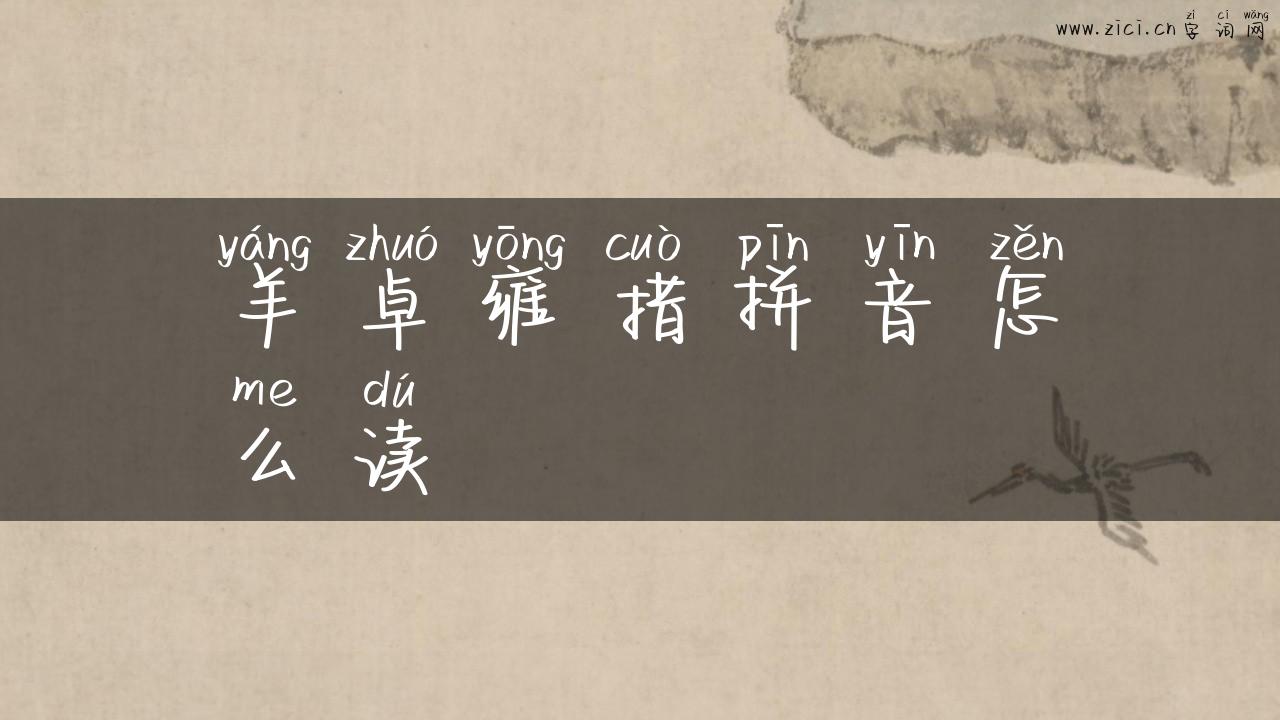 zì cí wǎng
www.zici.cn字词网
yáng zhuó yōng cuò pīn yīn zěn
羊卓雍措拼音怎
me dú
么读